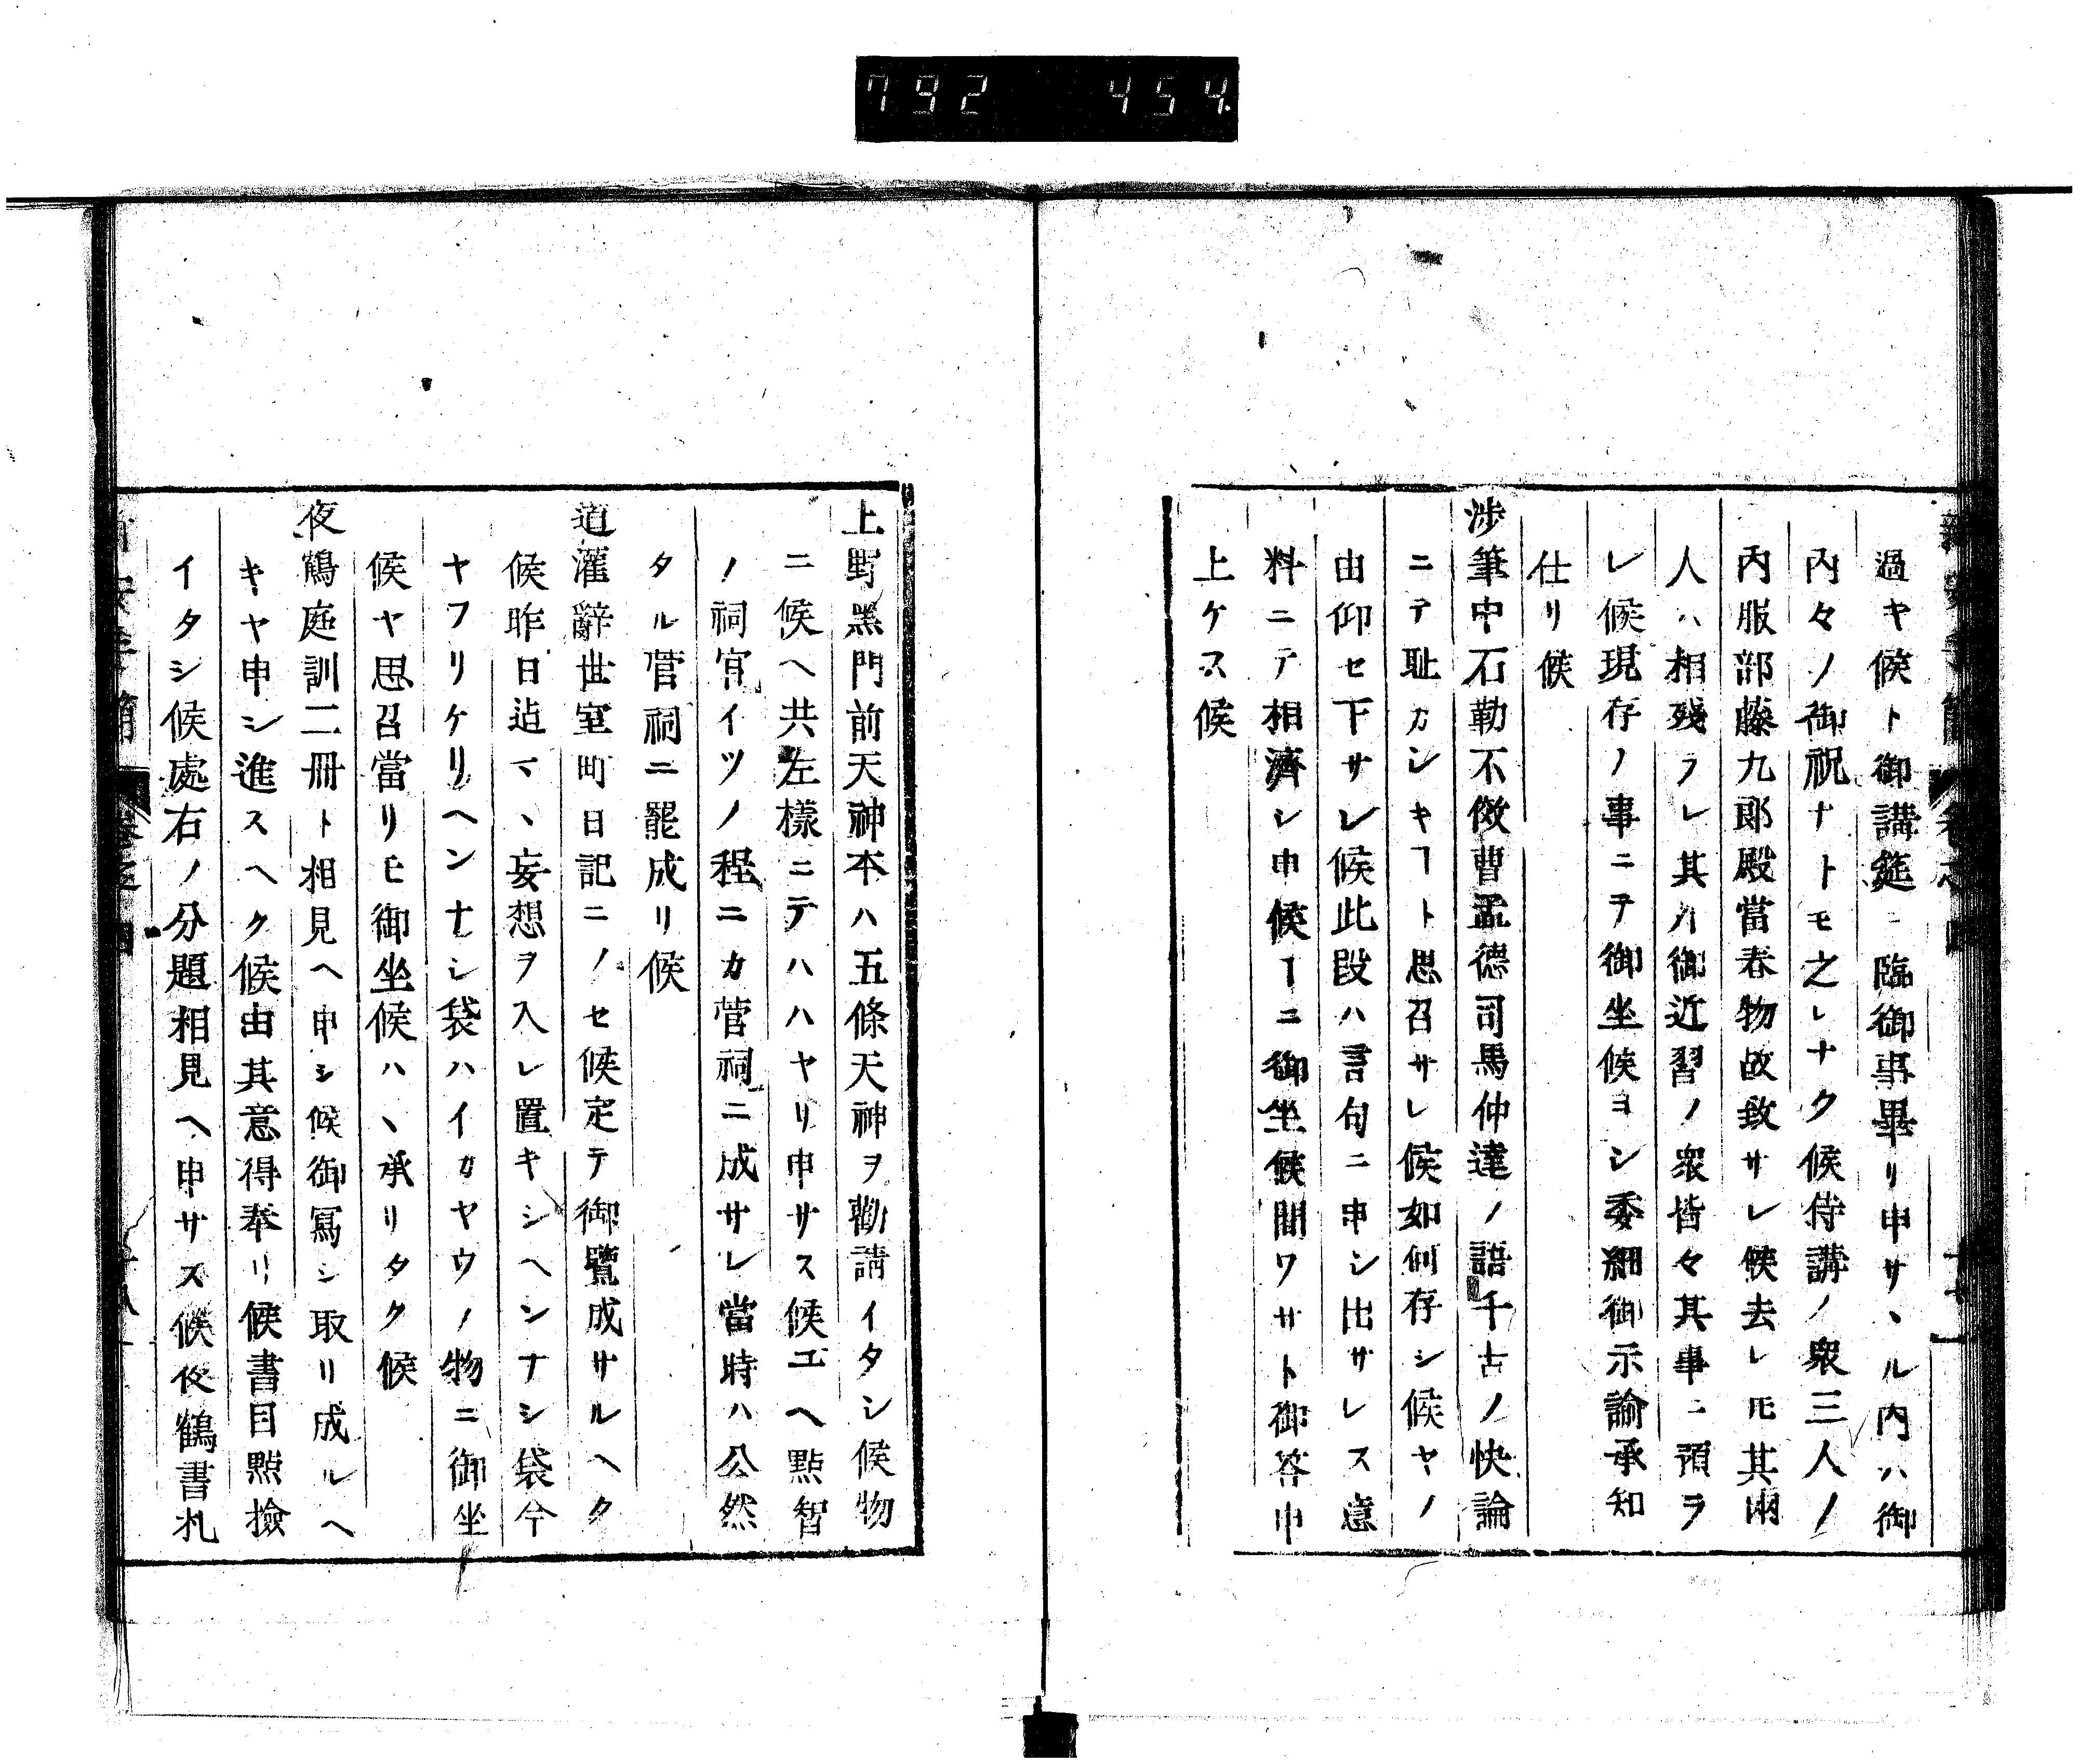 792 454
過キヤ候ト御講筵ニ臨御事畢リ申サヽル内ハ御
内々ノ御祝ナトモ之レナク候侍講ノ衆三人ノ
内服部藤九郎殿當春物故致サレ候去レ𪜈其兩
人ハ相殘ラレ其外御近習ノ衆皆々其事ニ預ラ
レ候現存ノ事ニテ御坐候ヨシ委細御示諭承知
仕リ候
渉筆中石勒不傚曹孟德司馬仲達ノ語千古ノ快論
ニテ耻カシキヿト思召サレ候如何存シ候ヤノ
由仰セ下サレ候此段ハ言句ニ申シ出サレス意
料ニテ相濟シ申候ヿニ御坐候聞ワサト御答申
上ケス候
上野黑門前天神本ハ五條天神ヲ勸請イタシ候物
ニ候ヘ共左樣ニテハハヤリ申サス候ユヘ黠智
ノ祠官イツノ程ニカ菅祠ニ成サレ當時ハ公然
タル菅祠ニ罷成リ候
道灌辭世室町日記ニノセ候定テ御覽成サルヘク
候昨日迠マヽ妄想ヲ入レ置キシヘンナシ袋今
ヤフリケリヘンナシ袋ハイカヤウノ物ニ御坐
候ヤ思召當リモ御坐候ハヽ承リタク候
夜鶴庭訓二冊ト相見ヘ申シ候御寫シ取リ成ルヘ
キヤ申シ進スヘク候由其意得奉リ候書目點撿
イタシ候處右ノ分題相見ヘ申サス候夜鶴書札